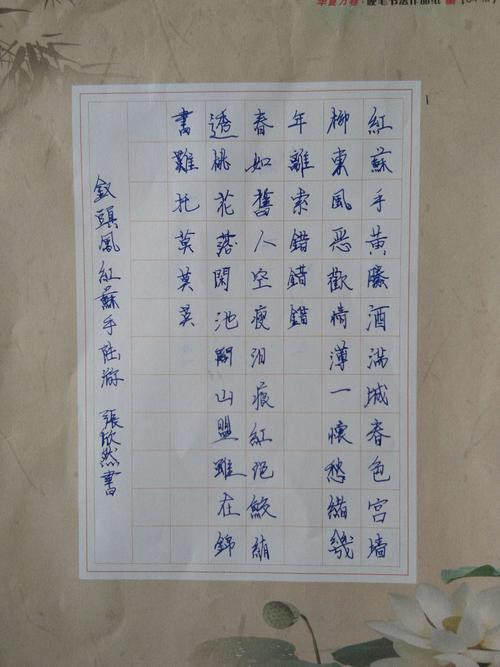 华夏万卷·硬笔书法作品纸
紅蘇手黃縢酒滿城春色宮墙
柳東風恶歡情薄一懷愁緒幾
年離索錯錯錯
春如舊人空瘦泪痕紅浥鮫綃
透桃花落閑池閣山盟雖在錦
書難托莫莫莫
釵頭鳳紅蘇手陸游 張欣然書